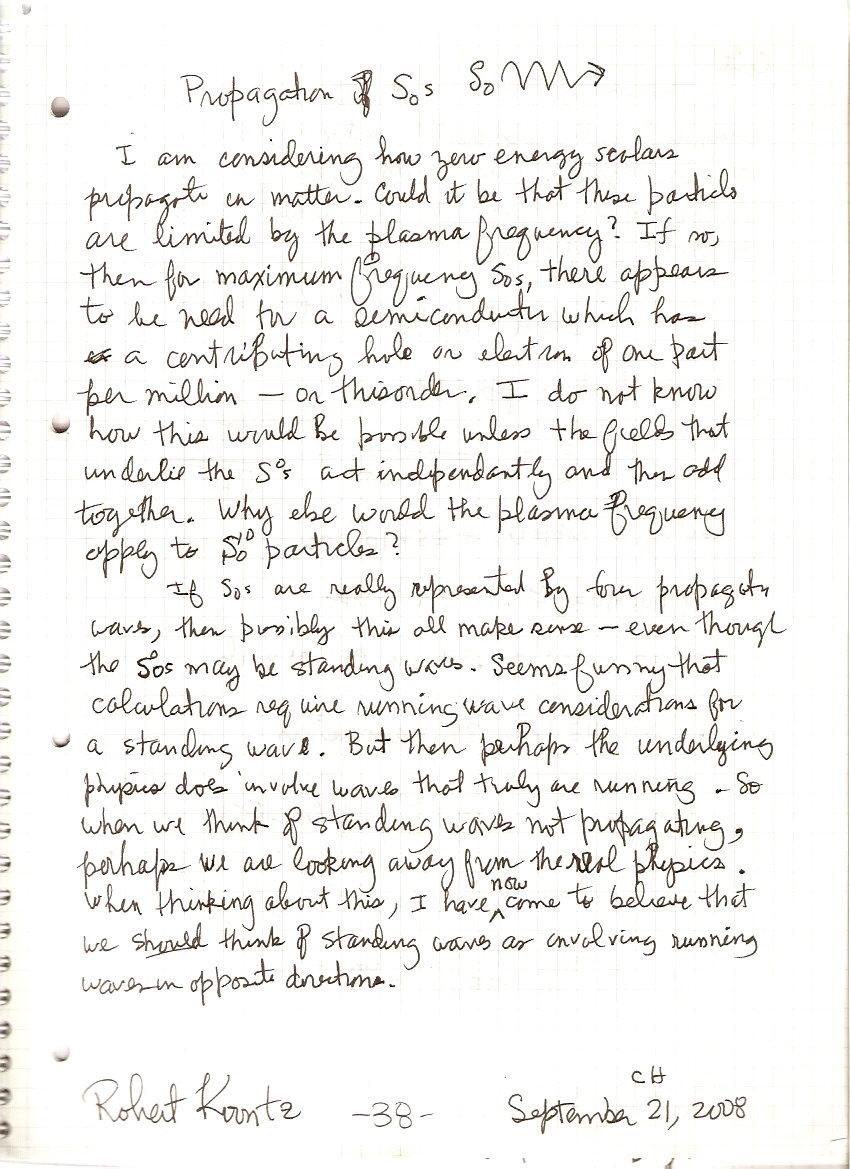 Propagation of Sos So
I am considering how zero energy scalars
propagate in matter. Could it be that these particles
are limited by the plasma frequency? If so,
then for maximum frequency Sos, there appears
to be need for a semiconductor which has
a contributing hole or electron of one part
per million — or this order. I do not know
how this would be possible unless the fields that
underlie the Sos act independantly and then add
together. Why else would the plasma frequency
apply to So particles?
If Sos are really represented by four propagate
waves, then possibly this all make sense — even though
the Sos may be standing waves. Seems funny that
calculations require running wave considerations for
a standing wave. But then perhaps the underlying
physics does involve waves that truly are running. So
when we think of standing waves not propagating,
perhaps we are looking away from the real physics.
When thinking about this, I have now come to believe that
we should think of standing waves as involving running
waves in opposite directions.
CH
Robert Koontz -38- September 21, 2008